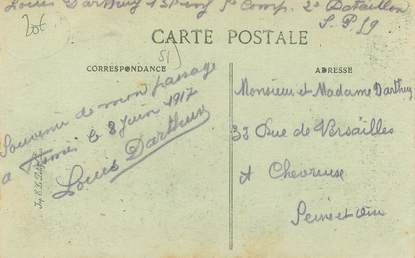 20f
Louis Darthuy 13e Inf 5e Comp. 2e Bataillon
S. P 59
CARTE POSTALE
51
CORRESPONDANCE
Souvenir de mon passage
a le 8 Juin 1917
Louis Darthuy
ADRESSE
Monsieur et Madame Darthuy
33 Rue de Versailles
A Chevreuse
Seine et Oise